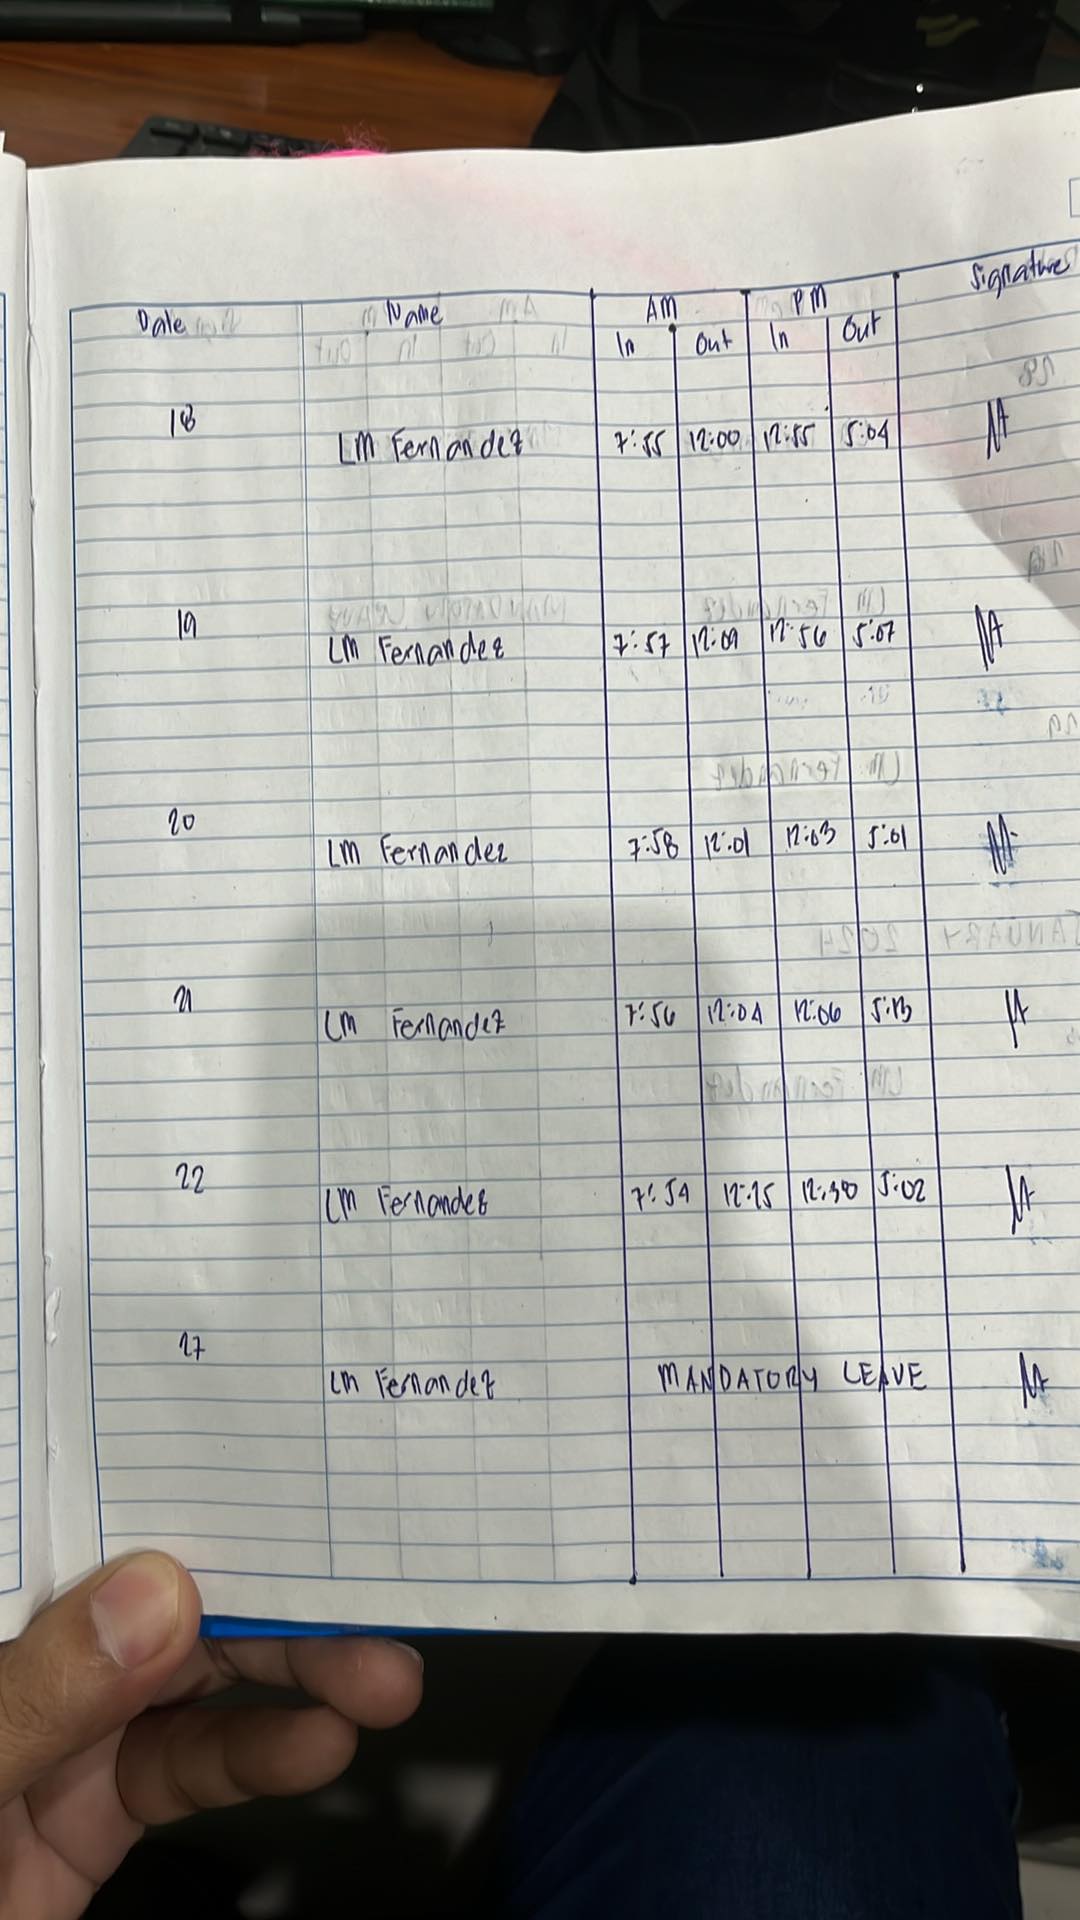 Date Name AM PM Signature
In Out In Out
18 LM Fernandez 7:55 12:00 12:55 5:04
19 LM Fernandez 7:57 12:09 12:56 5:07
20 LM Fernandez 7:58 12:01 12:03 5:01
21 LM Fernandez 7:56 12:04 12:06 5:13
22 LM Fernandez 7:54 12:25 12:30 5:02
27 LM Fernandez MANDATORY LEAVE